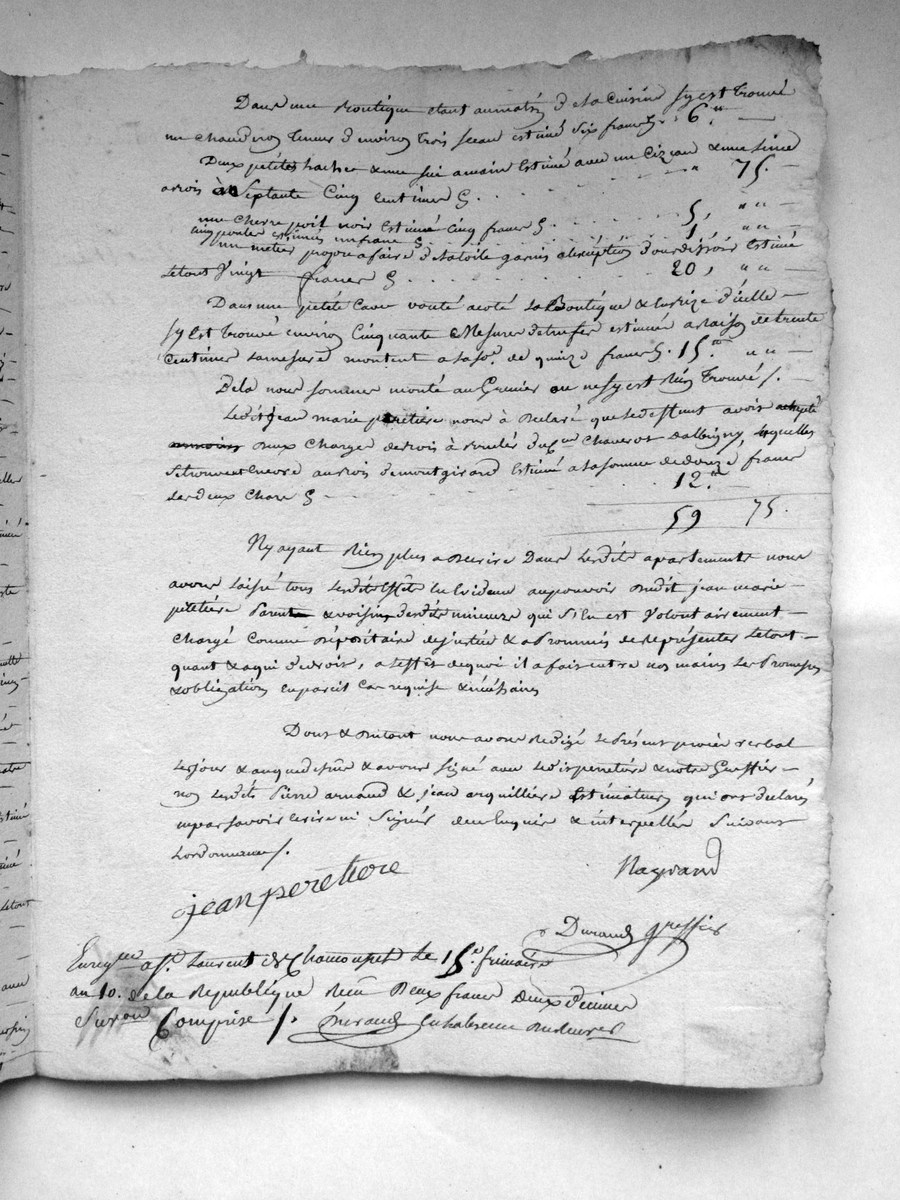 Dans une Boutique etant au matin d de la Cuisine sy est trouvé
un chaudron tenent d'environ trois seau estimé six francs . 6 "
Deux petites haches & une sci a main Estimé avec un Cizeau & une
a bois à Septante Cinq Centimes . 75
une chevre poil noir estimé cinq francs . . . . . . 5, " "
cinq poules estimés un franc . . . . . . 1, " "
un metier propre a faire de la toile garnis a l'exeption d'ourdissoir Estimé
le tout Vingt francs . . . . . . 20, " "
Dans une petite Cave vouté a coté la Boutique & d'icelle
sy Est trouvé environ Cinquante Mesures de trufes estimée a Raison de trente
Centimes la mesure montent a la so.e de quinze francs . 15 " "
De la nous sommes monté au Grenier ou ne sy est Rien Trouvé /.
Ledit jean marie peretiere nous à Déclaré que le deffunt avoit achepté
deux Charges de bois à Chaverot d'albigny, lesquelles
se trouvent Encore au bois de montgirard Estimé a la somme de douze francs
les deux Chars . . . 12 "
59 75.
N'y ayant Rien plus a decrire Dans lesdits apartements nous
avons laissé tous lesdits Effets En Evidence au pouvoir dudit jean marie
peretiere Parent & voisin desdits mineurs qui s'En est Volontairement
Chargé Comme Dépositaire de justice & a Prommis de Représenter le tout
quant & a qui d'e droit, a l'effet de quoi il a fait entre nos mains les Promesses
& obligation en pareil Cas requise & nécessaires
Dont & du tout nous avons Redigé le Présent procés verbal
les jour & an que dessus & avons signé avec ledit peretiere & notre Greffier
non lesdits Pierre arnaud & jean arquilliere Estimateurs qui ont declarés
ne pas savoir Ecrire ni Signés de ce Enquis & interpellés Suivant
Lordonnance /.
jean peretiere
Nayrand
Durand greffier
Enreg.tré a S.t Laurent de Chamousset le 15 frimaire
an 10. de la Republique Reçu Deux francs deux Decimes
Subv.on Comprise /.